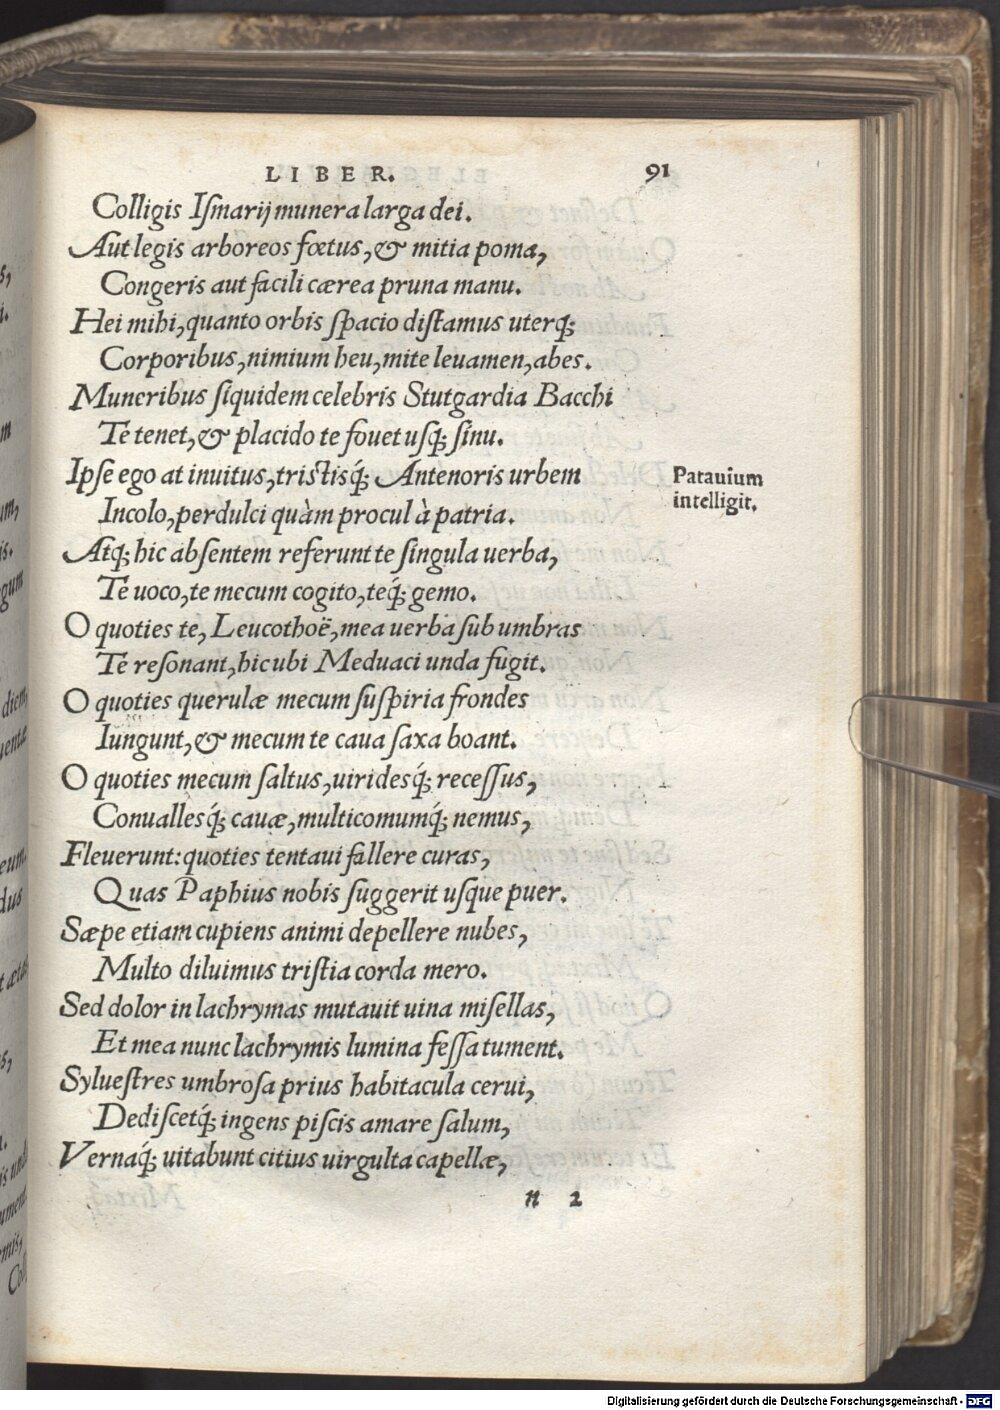 LIBER. 91
Colligis Iſmarij munera larga dei.
Aut legis arboreos fœtus, & mitia poma,
Congeris aut facili cærea pruna manu.
Hei mihi, quanto orbis ſpacio diſtamus uterq;
Corporibus, nimium heu, mite leuamen, abes.
Muneribus ſiquidem celebris Stutgardia Bacchi
Te tenet, & placido te fouet uſq; ſinu.
Ipſe ego at inuitus, triſtisq́; Antenoris urbem
Patauium
intelligit.
Incolo, perdulci quàm procul à patria.
Atq; hic abſentem referunt te ſingula uerba,
Te uoco, te mecum cogito, teq́; gemo.
O quoties te, Leucothoë, mea uerba ſub umbras
Te reſonant, hic ubi Meduaci unda fugit.
O quoties querulæ mecum ſuſpiria frondes
Iungunt, & mecum te caua ſaxa boant.
O quoties mecum ſaltus, uiridesq́; receſſus,
Conuallesq́; cauæ, multicomumq́; nemus,
Fleuerunt: quoties tentaui fallere curas,
Quas Paphius nobis ſuggerit uſque puer.
Sæpe etiam cupiens animi depellere nubes,
Multo diluimus triſtia corda mero.
Sed dolor in lachrymas mutauit uina miſellas,
Et mea nunc lachrymis lumina feſſa tument.
Sylueſtres umbroſa prius habitacula cerui,
Dediſcetq́; ingens piſcis amare ſalum,
Vernaq́; uitabunt citius uirgulta capellæ,
n 2
Digitalisierung gefördert durch die Deutsche Forschungsgemeinschaft - DFG